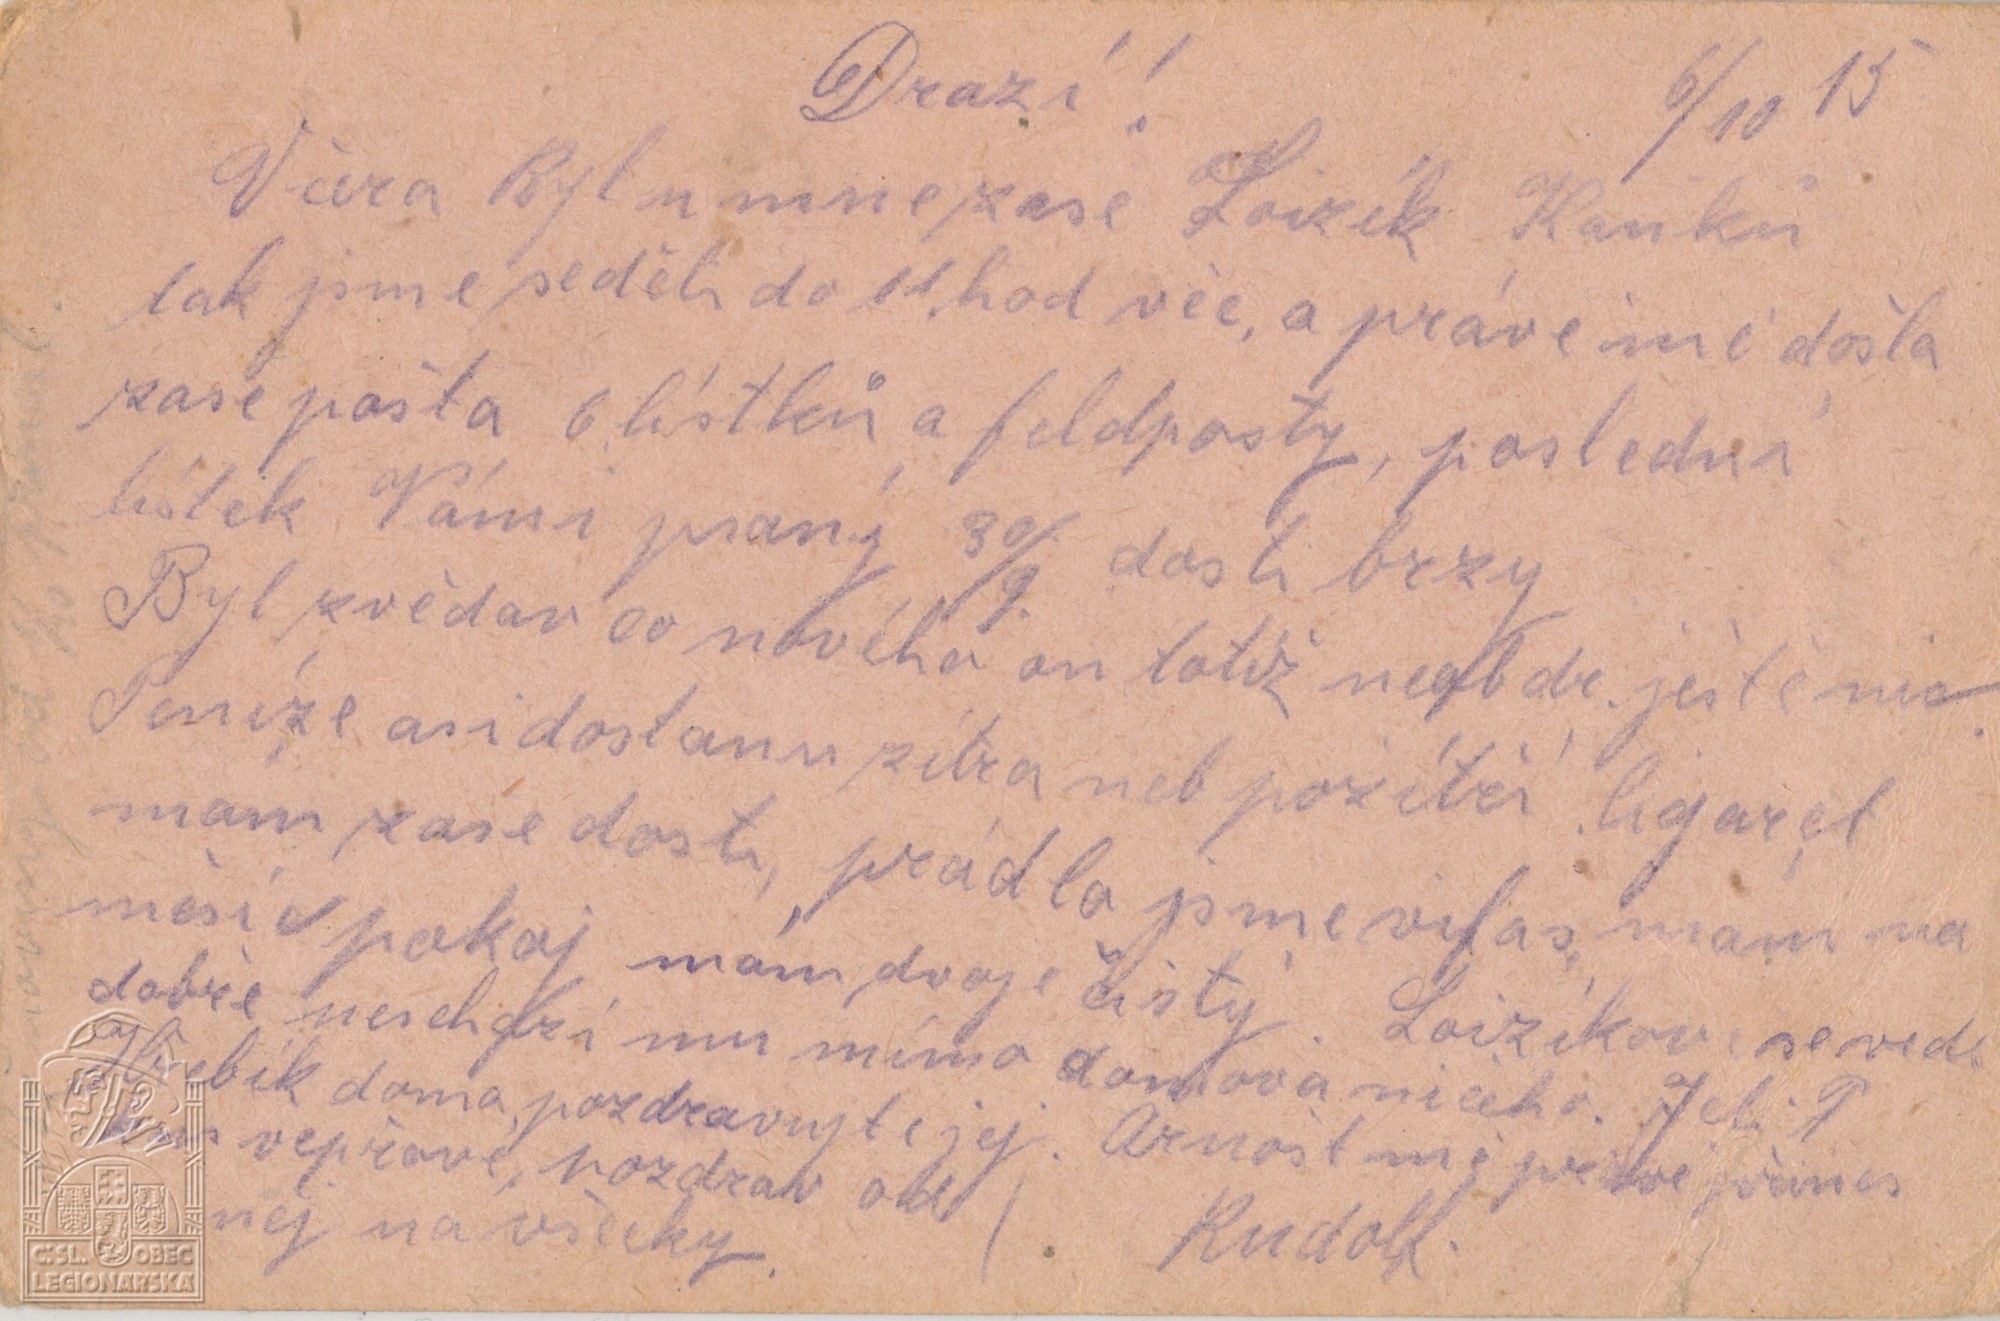 Drazí!
6/10 15
Včera Byl u mne zase Loizék Kaňků
tak jsme seděli do 11. hod več, a právě mě došla
zase pošta 6 lístků a feldposty, poslední
lístek Vámi psaný 30/9. dosti brzy
Byl zvědav co nového on totiž neobdr. ještě nic.
Peníze asi dostanu zítra neb pozítří cigaret
mám zase dosti, prádlo jsme vyfas, mám na
měsíc pokoj mám dvoje čistý. Loizíkovi se vede
dobře neschází mu mimo domova ničeho. Je-li P
Hřebík doma, pozdravujte jej. Arnošt mě právě přines
vepřové, pozdrav od
něj na všecky.
Rudolf.
ČSL. OBEC
LEGIONÁŘSKÁ